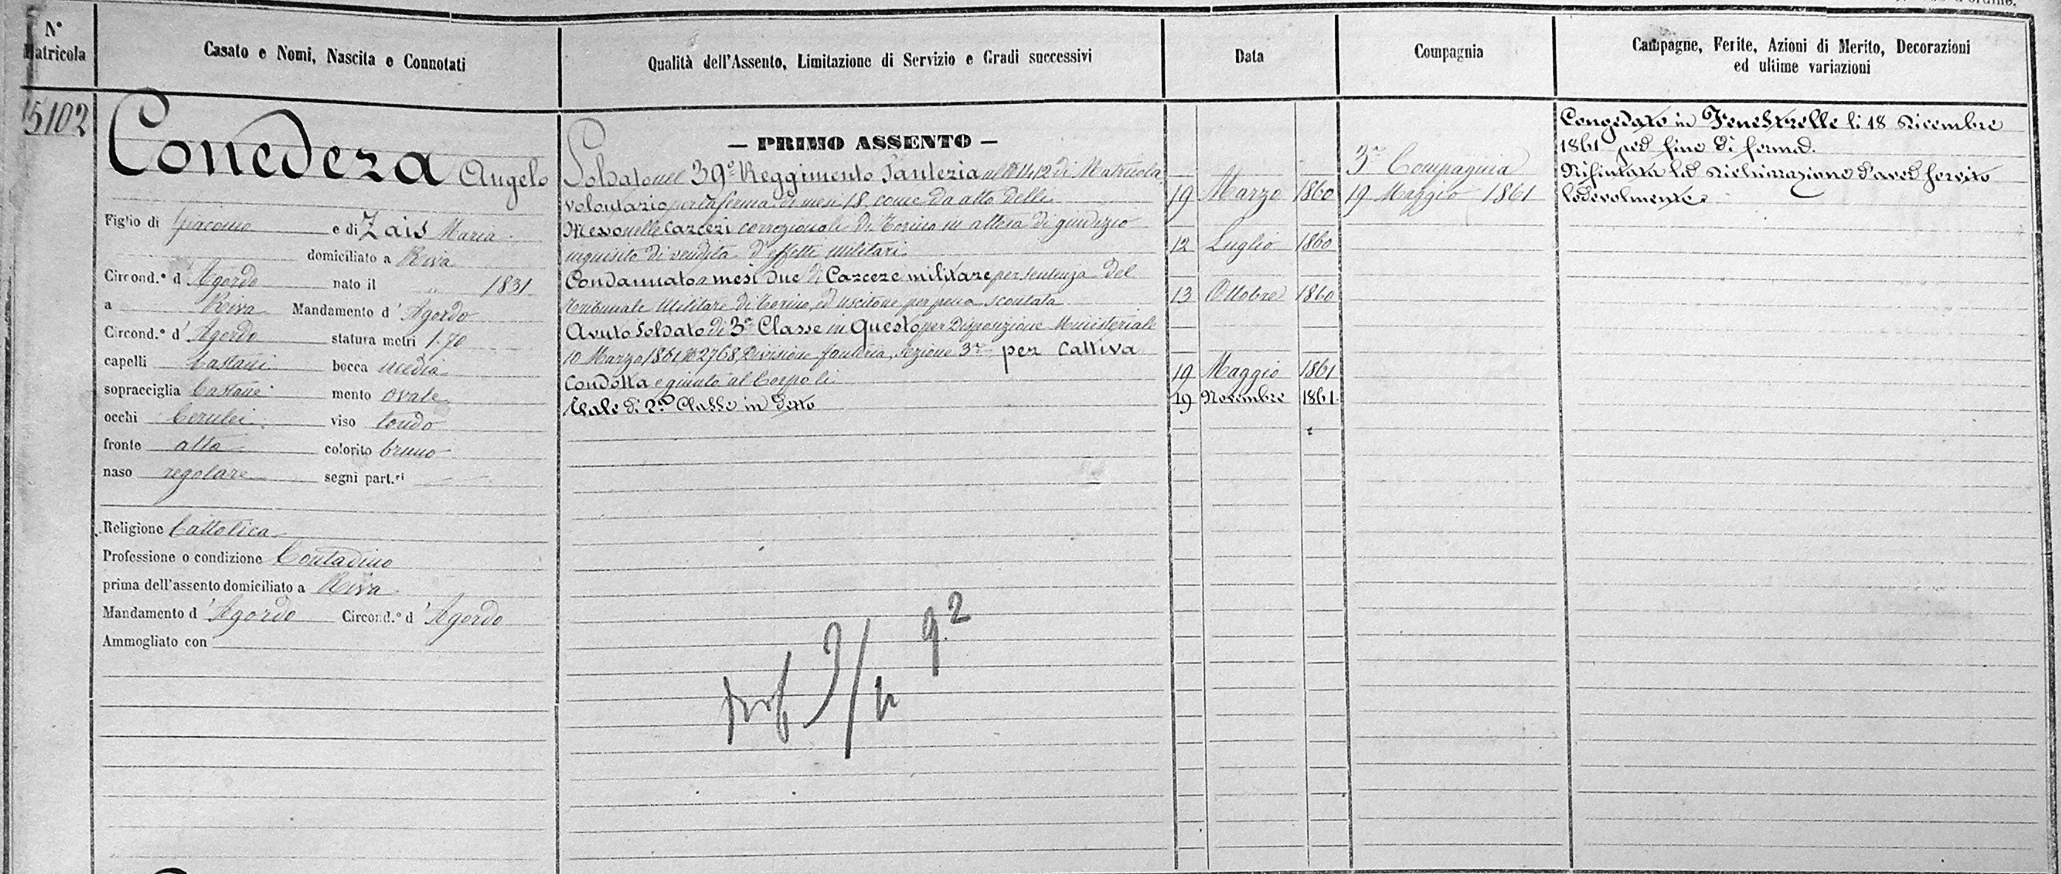 N° Matricola
Casato e Nomi, Nascita e Connotati
Qualità dell'Assento, Limitazione di Servizio e Gradi successivi
Data
Compagnia
Campagne, Ferite, Azioni di Merito, Decorazioni
ed ultime variazioni
5102
Conedera Angelo
Figlio di Giacomo e di Zais Maria
domiciliato a Riva
Circond.° d'Agordo nato il 1831
a Riva Mandamento d'Agordo
Circond.° d'Agordo statura metri 1.70
capelli Castani bocca media
sopracciglia Castane mento ovale
occhi Cerulei viso tondo
fronte alta colorito bruno
naso regolare segni part.ri
Religione Cattolica
Professione o condizione Contadino
prima dell'assento domiciliato a Riva
Mandamento d'Agordo Circond.° d'Agordo
Ammogliato con
— PRIMO ASSENTO —
Soldato nel 39° Reggimento Fanteria al N° 1412 di Matricola
volontario per la ferma di mesi 18 come da atto delli 19 Marzo 1860
Messo nelle Carceri correzionali di Torino in attesa di giudizio
inquisito di vendita d'effetti militari 12 Luglio 1860
Condannato a mesi due di Carcere militare per sentenza del
Tribunale Militare di Torino, ed uscitone per pena scontata 13 Ottobre 1860
Avuto Soldato di 3ª Classe in Questo per Disposizione Ministeriale
10 Marzo 1861 N° 2768, Divisione fanteria, Sezione 3ª per Cattiva
Condotta e giunto al Corpo li 19 Maggio 1861
Tale di 2ª Classe in detto 19 Novembre 1861
3ª Compagnia
19 Maggio 1861
Congedato in Fenestrelle li 18 Dicembre
1861 per fine di ferma.
Rifiutata la Dichiarazione d'aver servito
lodevolmente
9.2